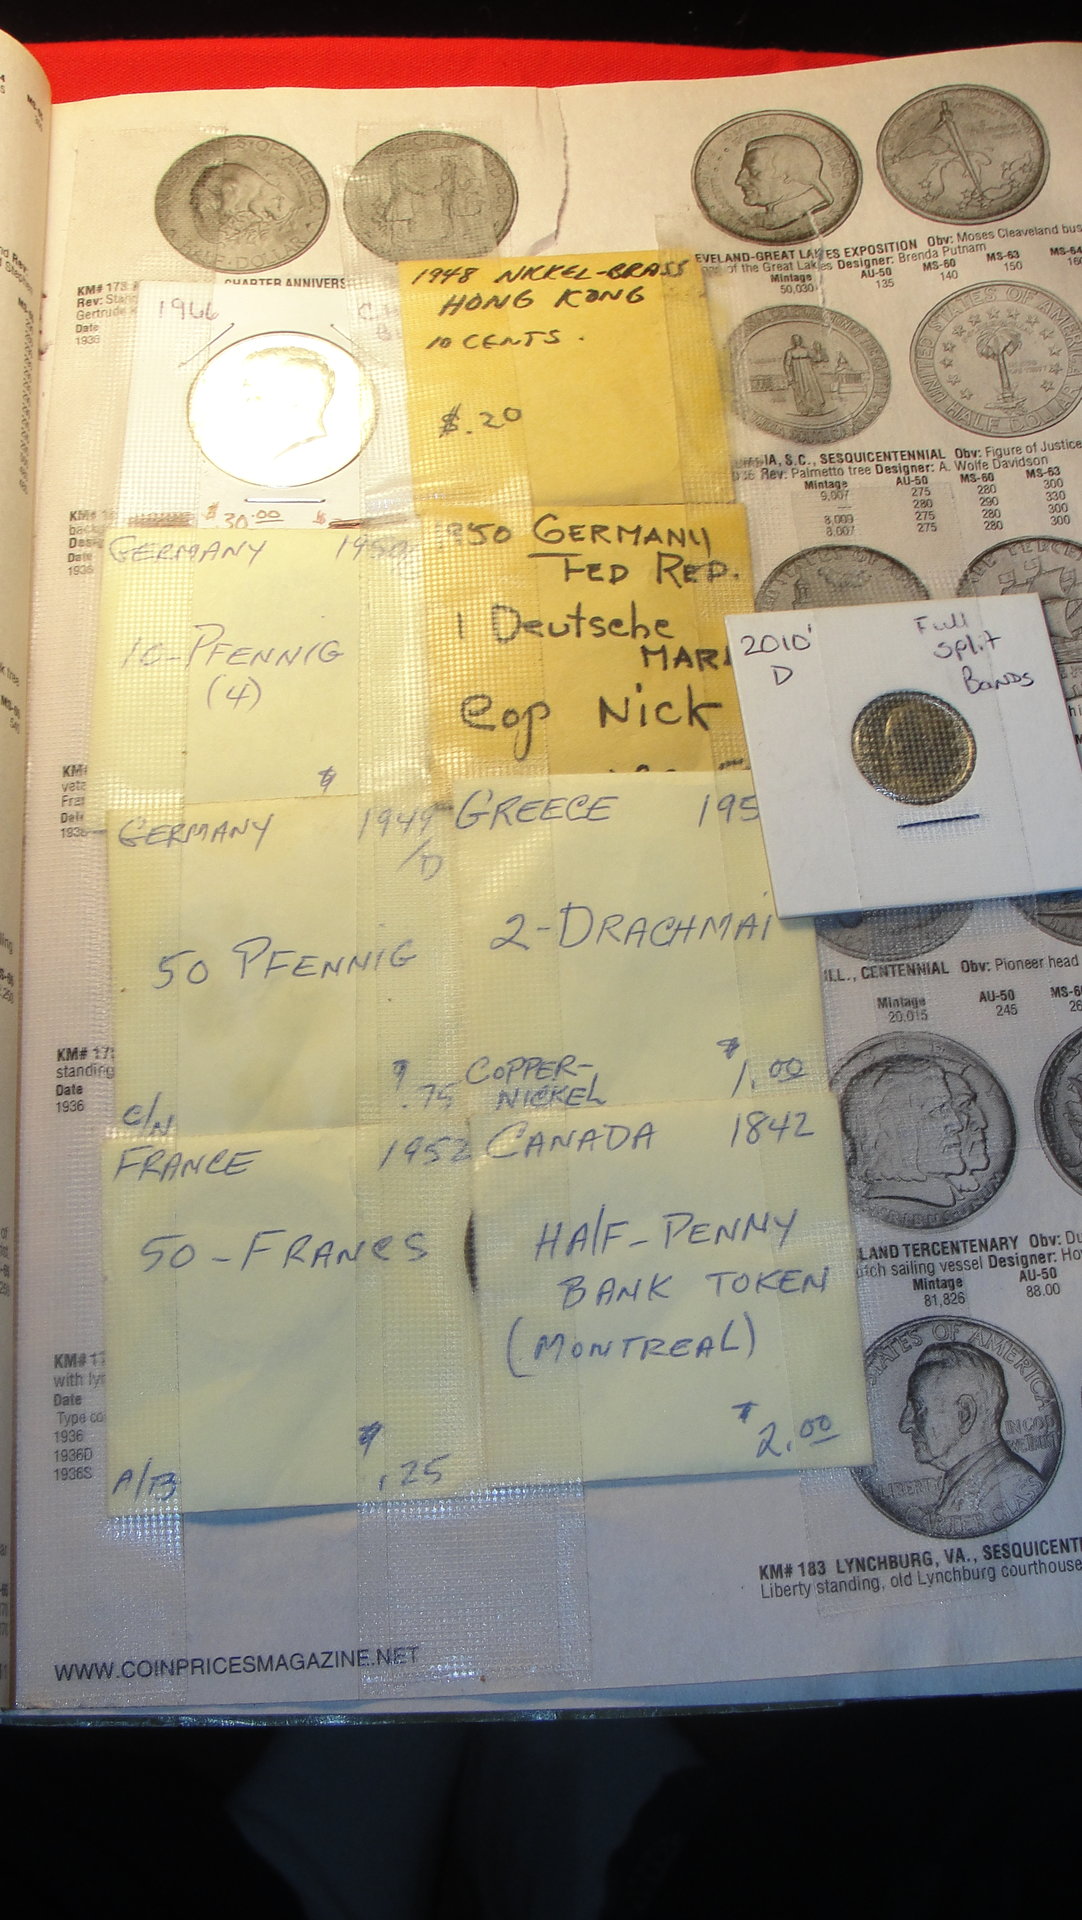 CHARTER ANNIVERS
KM# 178
Rev: Stan
Gertrude
Date
1936
EVELAND-GREAT LAKES EXPOSITION Obv: Moses Cleaveland bus
of the Great Lakes Designer: Brenda Putnam
Mintage AU-50 MS-60 MS-63 MS-64
50,030 135 140 150
1966
$30.00
1948 NICKEL-BRASS
HONG KONG
10 CENTS.
$.20
UNITED STATES OF AMERICA
UNITED HALF DOLLAR
IA, S.C., SESQUICENTENNIAL Obv: Figure of Justice
Rev: Palmetto tree Designer: A. Wolfe Davidson
Mintage AU-50 MS-60 MS-63
9,007 275 280 300
280 290 330
8,009 275 280 300
8,007 275 280 300
GERMANY 1950
10-PFENNIG
(4)
$
1950 GERMANY
FED REP.
1 Deutsche
MAR
Cop Nick
2010
D
Full
Split
Bands
GERMANY 1949
/D
50 PFENNIG
C/N
$.75
GREECE 195
2-DRACHMAI
COPPER-
NICKEL
$1.00
ILL., CENTENNIAL Obv: Pioneer head
Mintage AU-50 MS-60
20,015 245
KM# 17
standing
Date
1936
FRANCE 1952
50-FRANCS
A/B
$.25
CANADA 1842
HALF-PENNY
BANK TOKEN
(MONTREAL)
$2.00
LAND TERCENTENARY Obv: Du
utch sailing vessel Designer: Ho
Mintage AU-50
81,826 88.00
KM# 17
with ly
Date
Type co
1936
1936D
1936S
STATES OF AMERICA
IN GOD
WE TRUST
LIBERTY
KM# 183 LYNCHBURG, VA., SESQUICENT
Liberty standing, old Lynchburg courthouse
WWW.COINPRICESMAGAZINE.NET